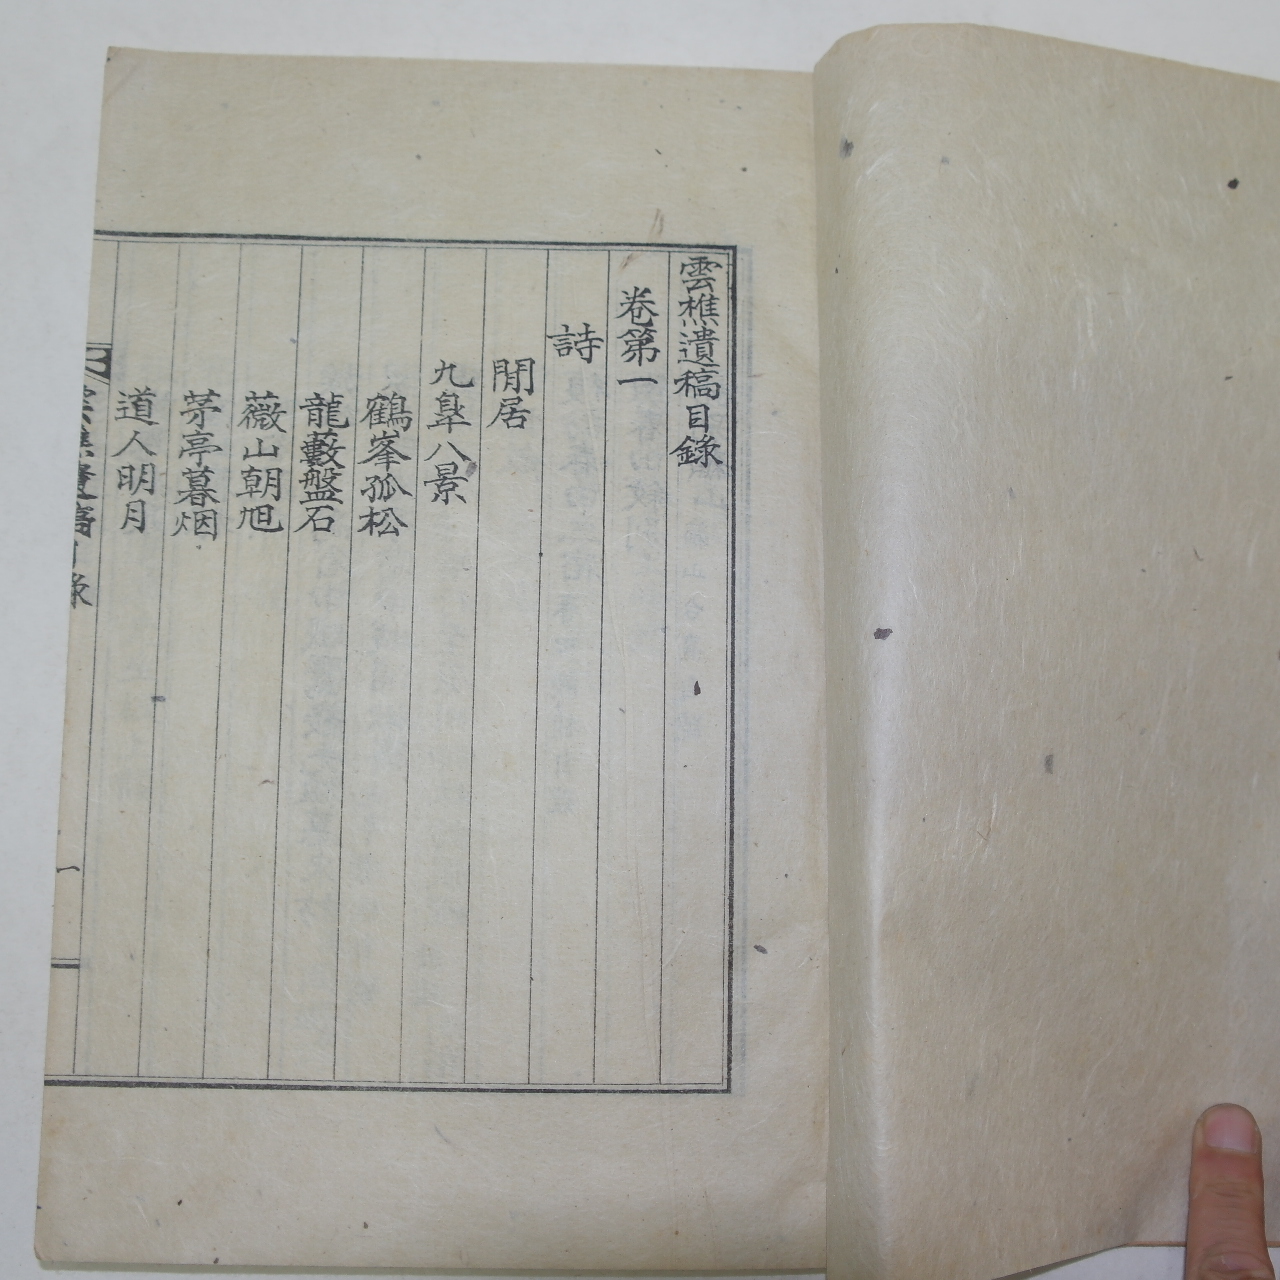 雲樵遺稿目錄
卷第一
詩
閒居
九皐八景
鶴峯孤松
龍藪盤石
薇山朝旭
茅亭暮烟
道人明月
雲樵遺稿目錄
一